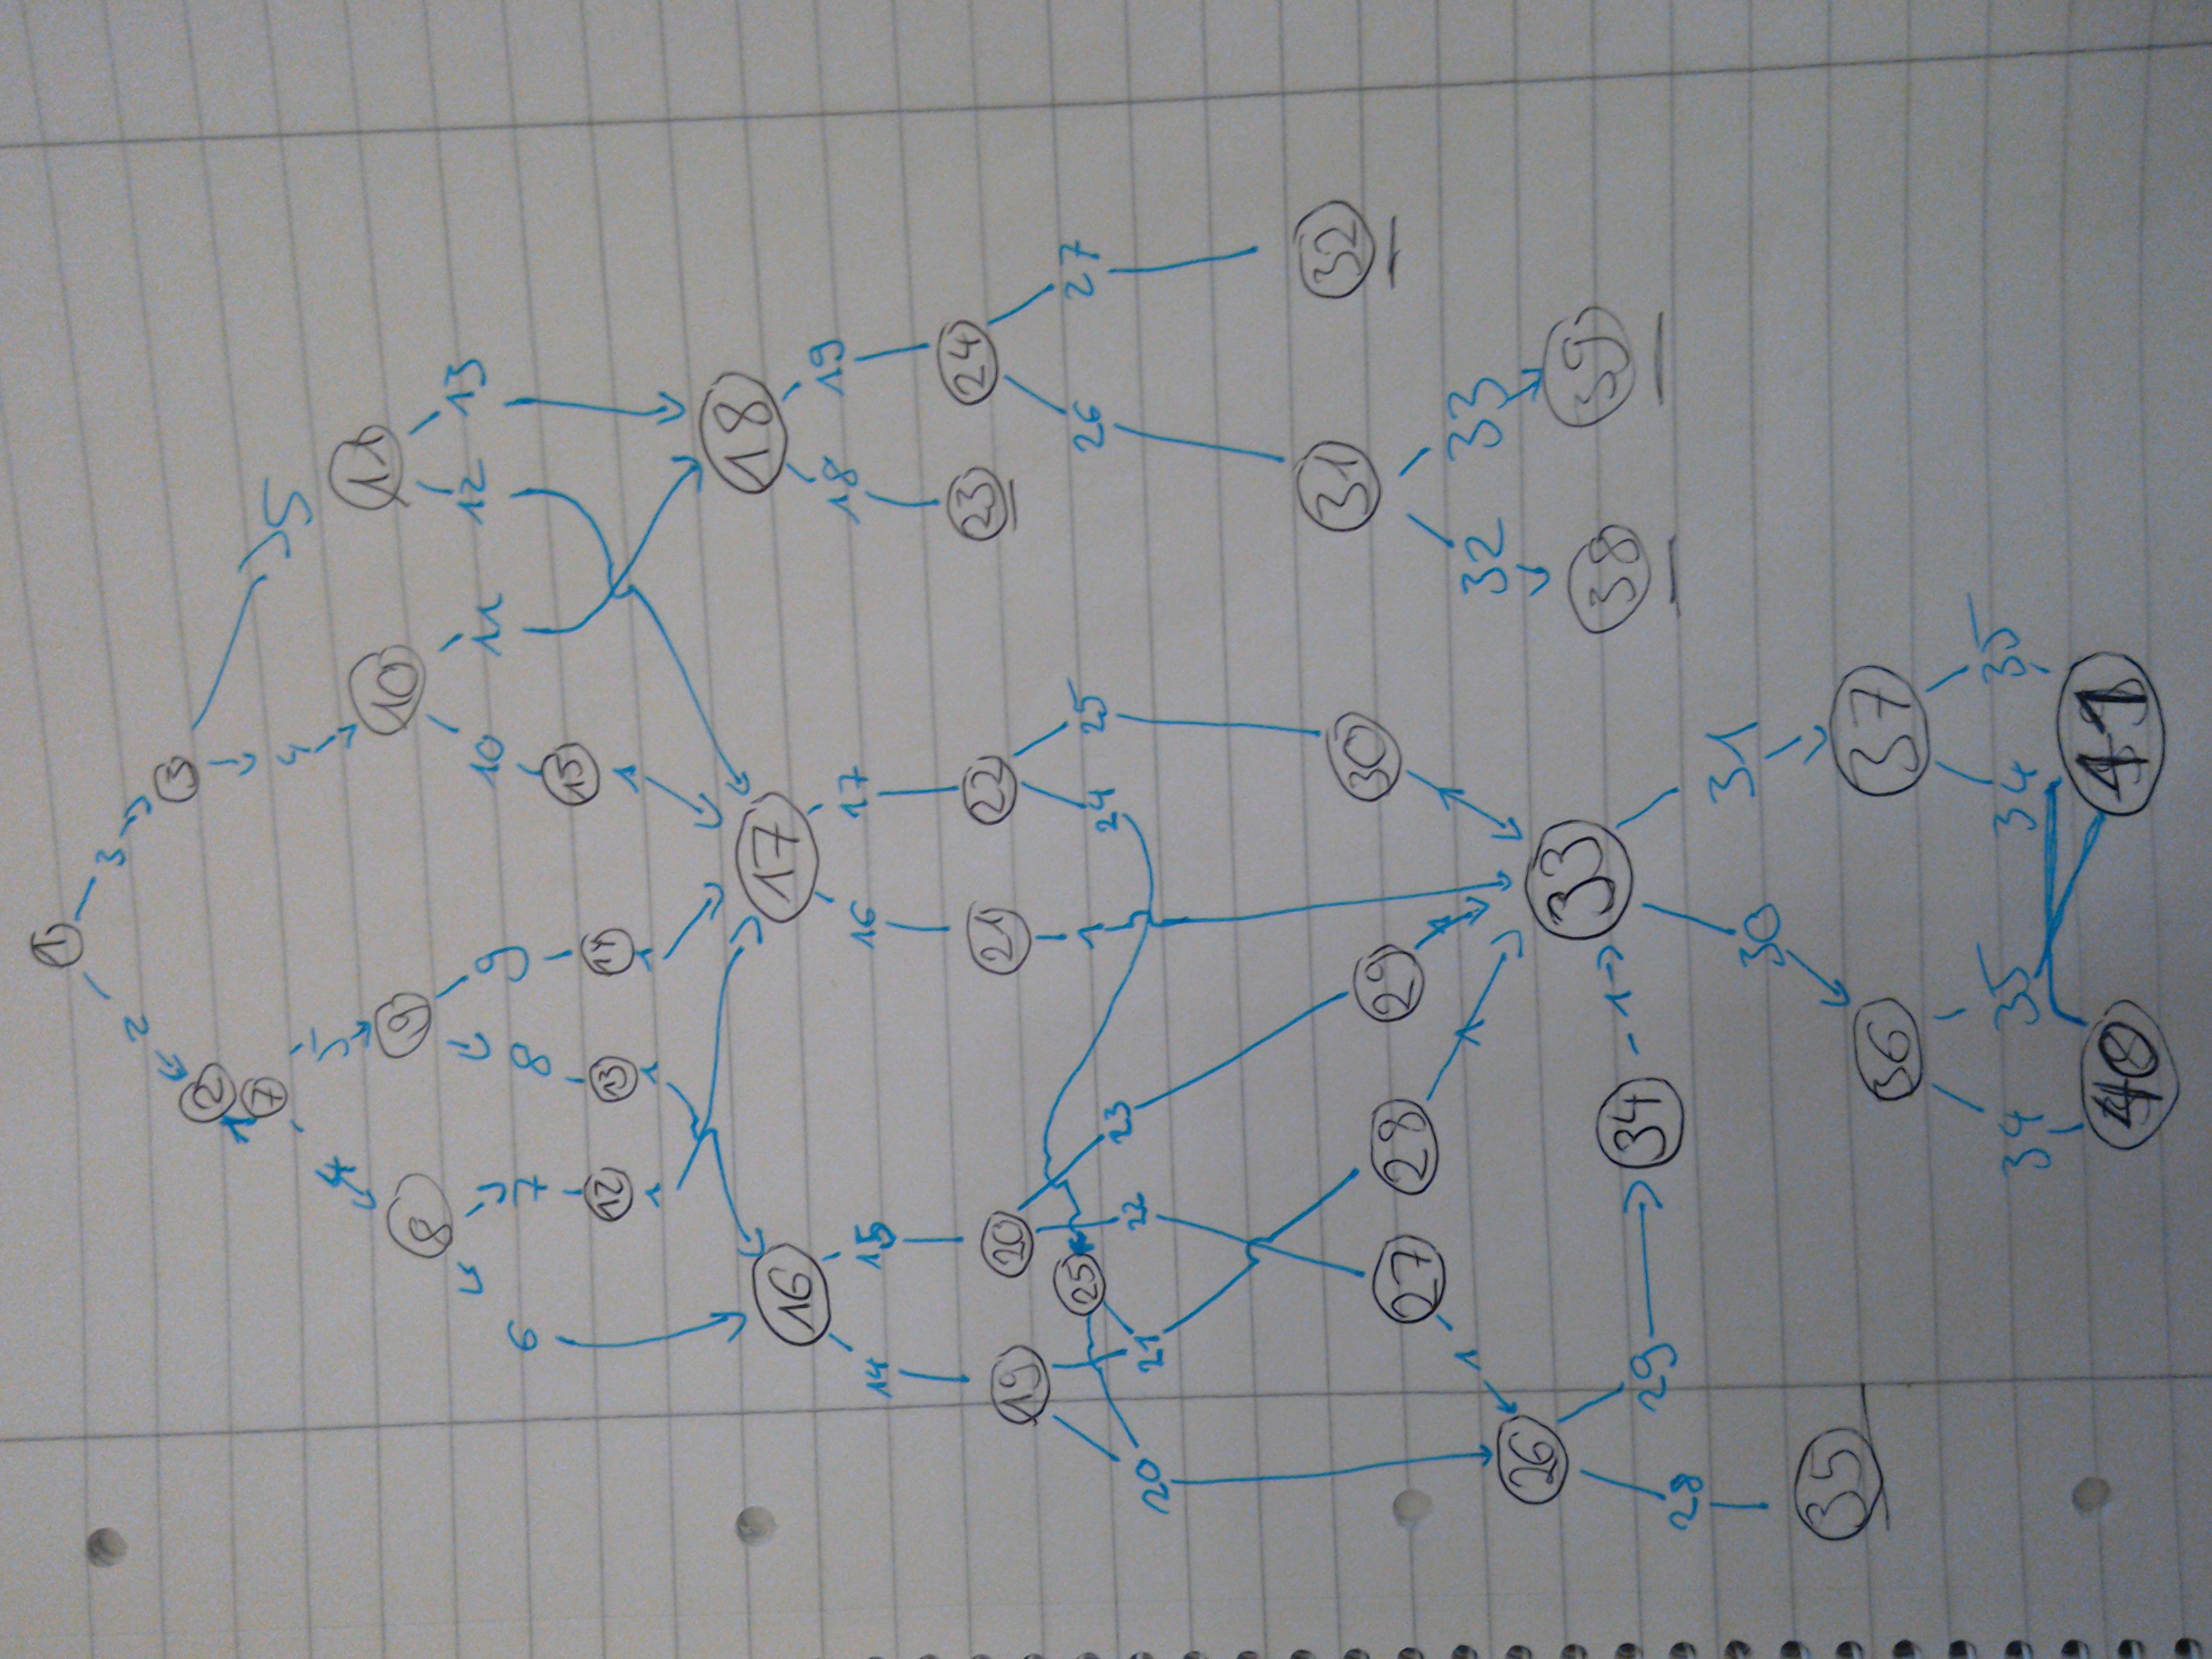 1
2 3
3
2
1
7
4 5
4 5
10 11
8 9
10 11 12 13
6 7 8 9
15
12 13 14
1 1 1 1
16 17 18
14 15 16 17 18 19
19 20 21 22 23 24
25
20 21 22 23 1 24 25 26 27
27 28 29 30 31 32
1 1 1 1
26 32 33
33
34 1 38 39
28 29
30 31
35
36 37
34 35 34 35
40 41